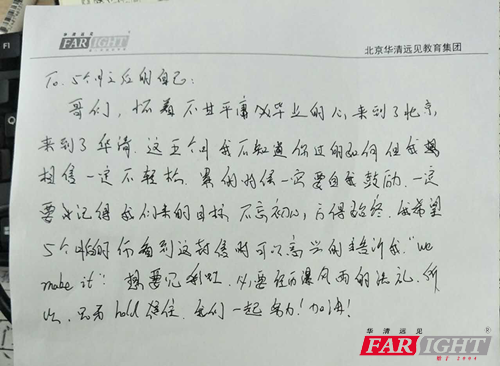 F1
华清远见
FARSIGHT
北京华清远见教育集团
To. 5个月之后的自己:
哥们,怀着不甘平庸的心,来到了北京,
来到了华清.这五个月我不知道你过的如何但我想
相信一定不轻松.累的时候一定要自我鼓励.一定
要记得我们来的目标,不忘初心,方得始终.我希望
5个月后的你看到这封信时可以高兴的告诉我."we
make it": 想要见彩虹.必要经历暴风雨的洗礼.所
以.只有hold得住.我们一起努力!加油!
华清远见
FARSIGHT
始于2004